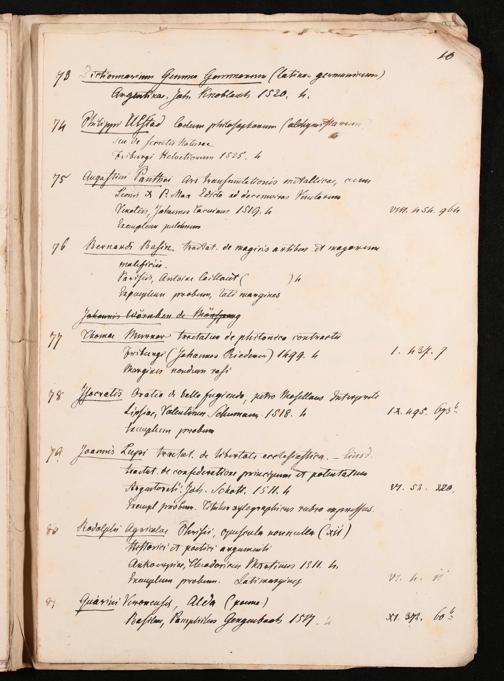 10
73 Dictionarium Gemma Gemmarum (latino germanicum)
Argentinae. Joh. Knoblauch 1520. 4.
74 Philippi Ulstad Coelum philosophorum
sive De secretis Naturae
Friburgi Helvetiorum 1525. 4
75 Augustini Panthei Ars transmutationis metallicae, cum
Leonis X P. Max Edicto ad decemviros Venetorum
Venetiis, Johannes Tacuinus 1519. 4 VIII. 454. 964
Exemplum pulchrum
76 Bernardi Basin tractat. de magicis artibus et magorum
maleficiis.
Parisiis, Antoine Caillaut ( ) 4
Exemplum probum, lati margines
Johannis de
77 Thomae Murner tractatus de phitonico contractu
Friburgi (Johannes Riederer) 1499. 4 1. 437. 7
Margines nondum rasi
78 Isocratis Oratio de bello fugiendo, petro Mosellano Interprete
Lipsiae, Valentinus Schumann. 1518. 4 IX. 495. 673b
Exemplum probum
79 Joannis Lupi tractat. de libertate ecclesiastica. Eiusd.
tractat. de confederatione principum et potentatum
Argentorati. Joh. Schott. 1511. 4 VI. 52. 220.
Exempl probum. Titulus xylographicus rubro impressus.
80 Rodolphi Agricolae Phrisii, opuscula nonnulla (xii)
et posteri argumenti
Antverpiae, Theodoricus Martinus 1511. 4
Exemplum probum. Lati margines VI. 4.
81 Guarini Veronensis, Alda (poema)
Basileae, Pamphilus Gengenbach 1517. 4 XI. 392. 60b